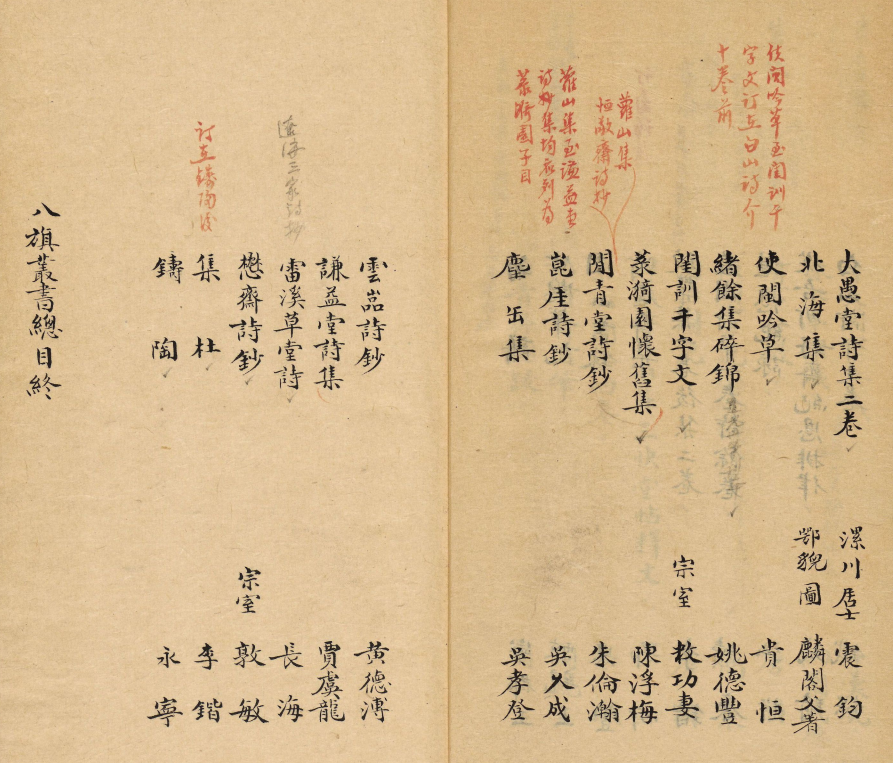 使閩吟草至閨訓千
字文訂在白山詩介
十卷前
蘿山集
恒敬齋詩抄
蘿山集至謙益堂
詩抄集均應列為
菉漪園子目
大愚堂詩集二卷 漯川居士 震鈞
北海集 鄂貌圖 麟閣父著
使閩吟草 貴恒
緒餘集碎錦 姚德豐
閨訓千字文 宗室 敖功妻
菉漪園懷舊集 陳浮梅
閒青堂詩鈔 朱倫瀚
崑厓詩鈔 吳久成
塵缶集 吳孝登
遼海三家詩抄
訂在鑄陶後
雲嵓詩鈔 黃德溥
謙益堂詩集 賈虞龍
雷溪草堂詩 長海
懋齋詩鈔 宗室 敦敏
集杜 李鍇
鑄陶 永寧
八旗叢書總目終